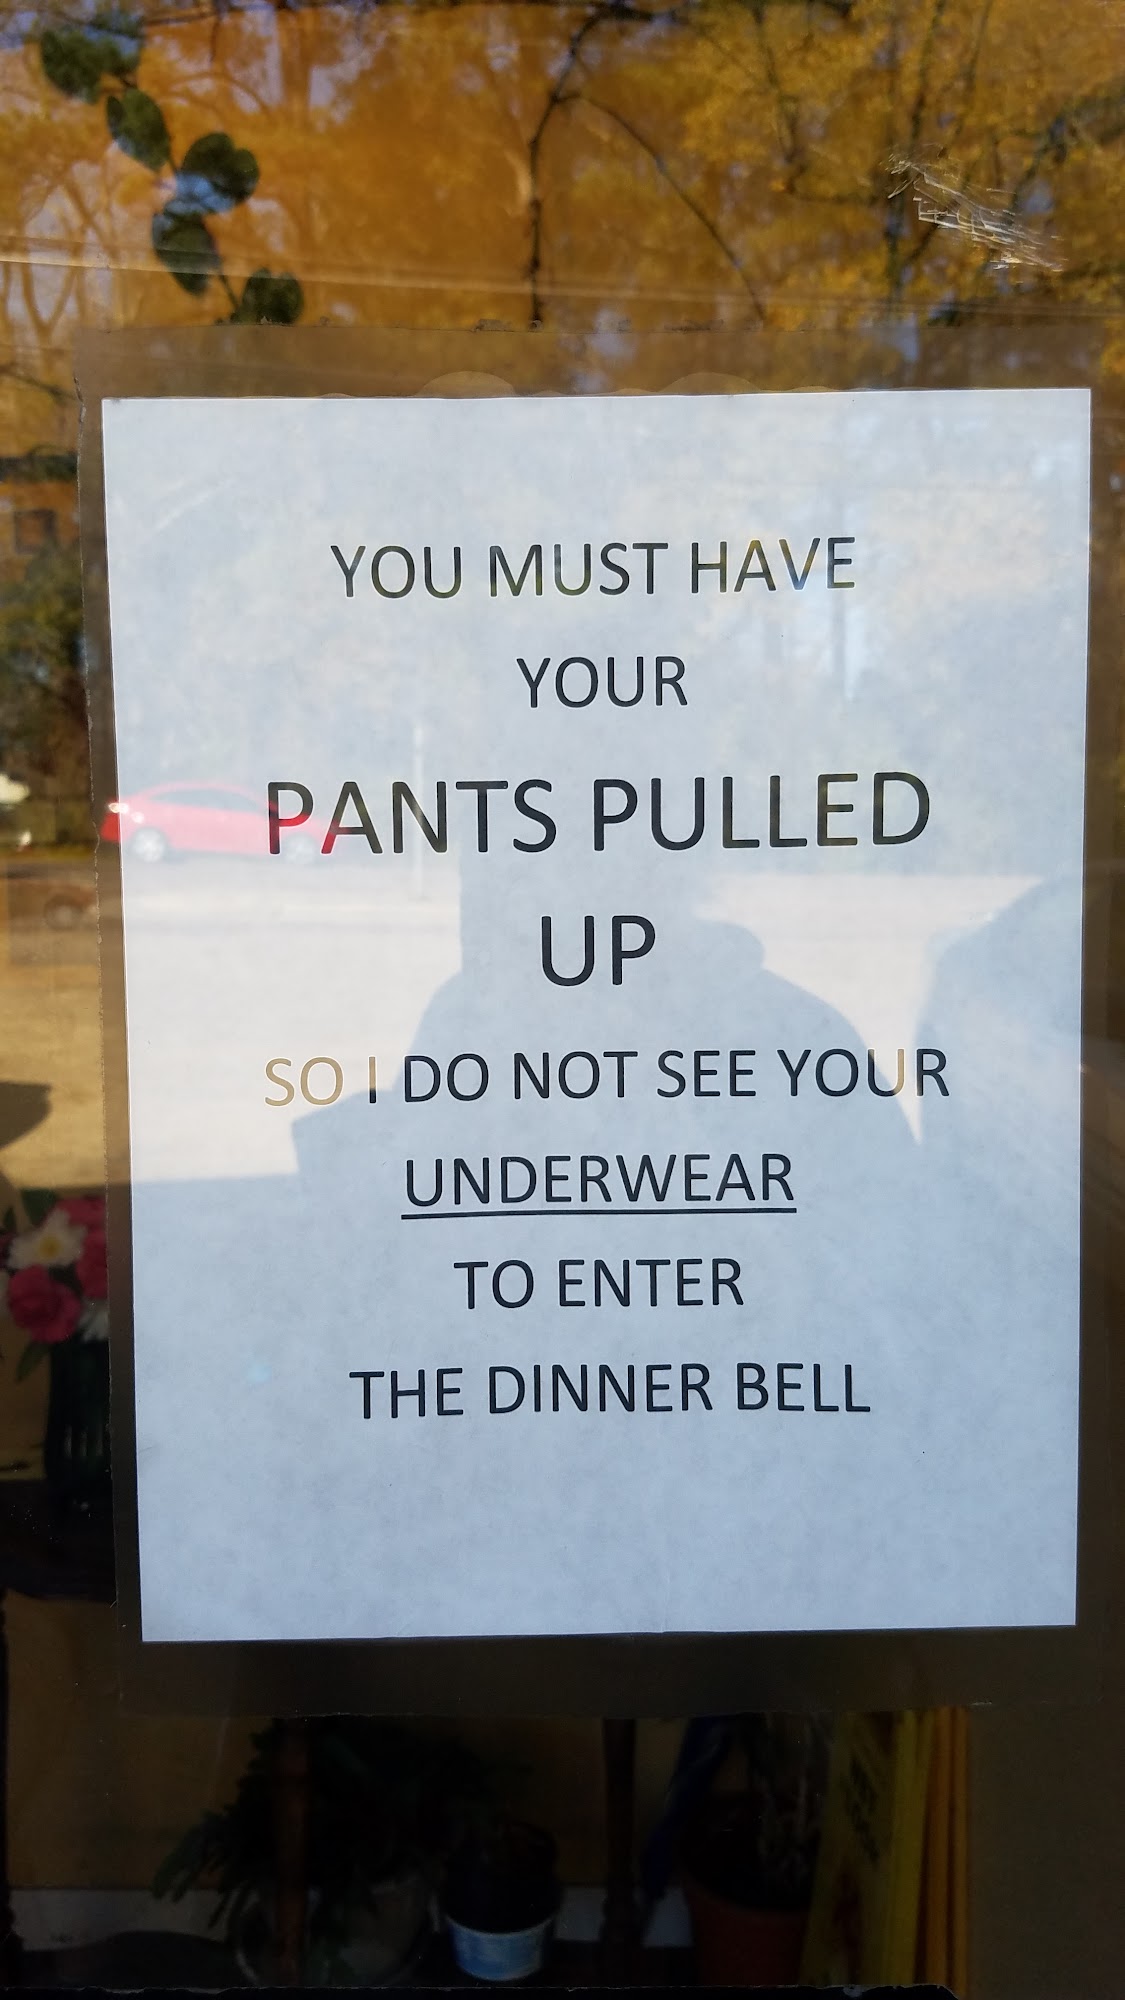 YOU MUST HAVE
YOUR
PANTS PULLED
UP
SO I DO NOT SEE YOUR
UNDERWEAR
TO ENTER
THE DINNER BELL